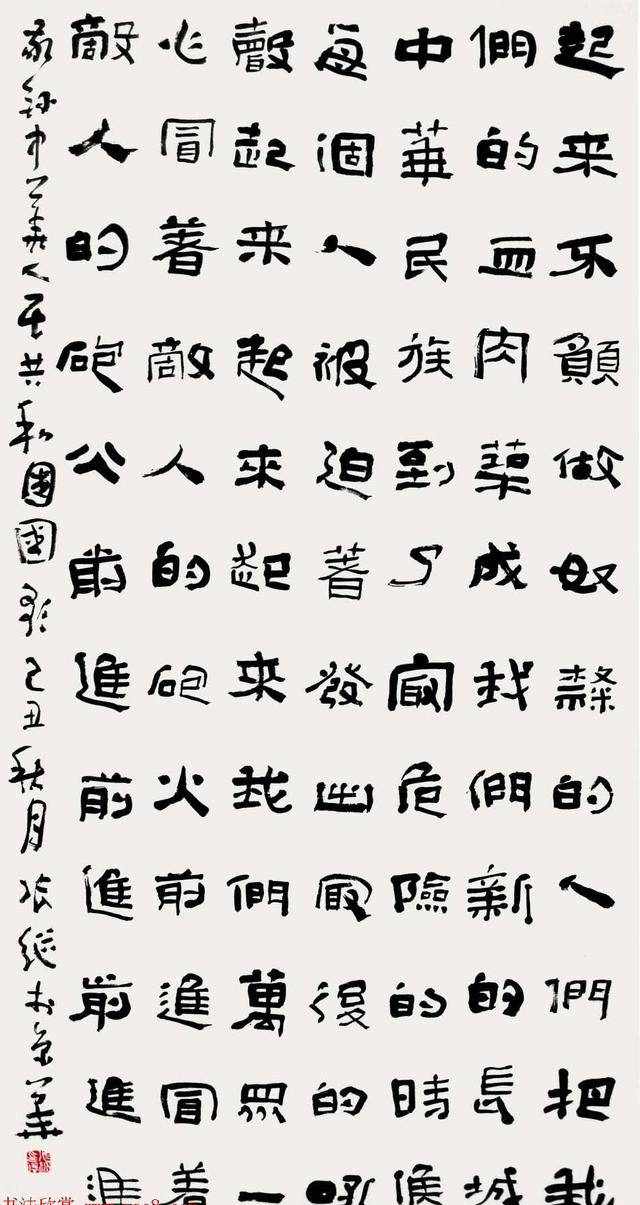 起来不願做奴隸的人們把我
們的血肉築成我們新的長城
中華民族到了最危險的時候
每個人被迫著發出最後的吼
聲起来起來起來我們萬眾一
心冒著敵人的砲火前進冒着
敵人的砲火前進前進前進進
敬錄中華人民共和國國歌己丑秋月張繼於京華
书法欣赏